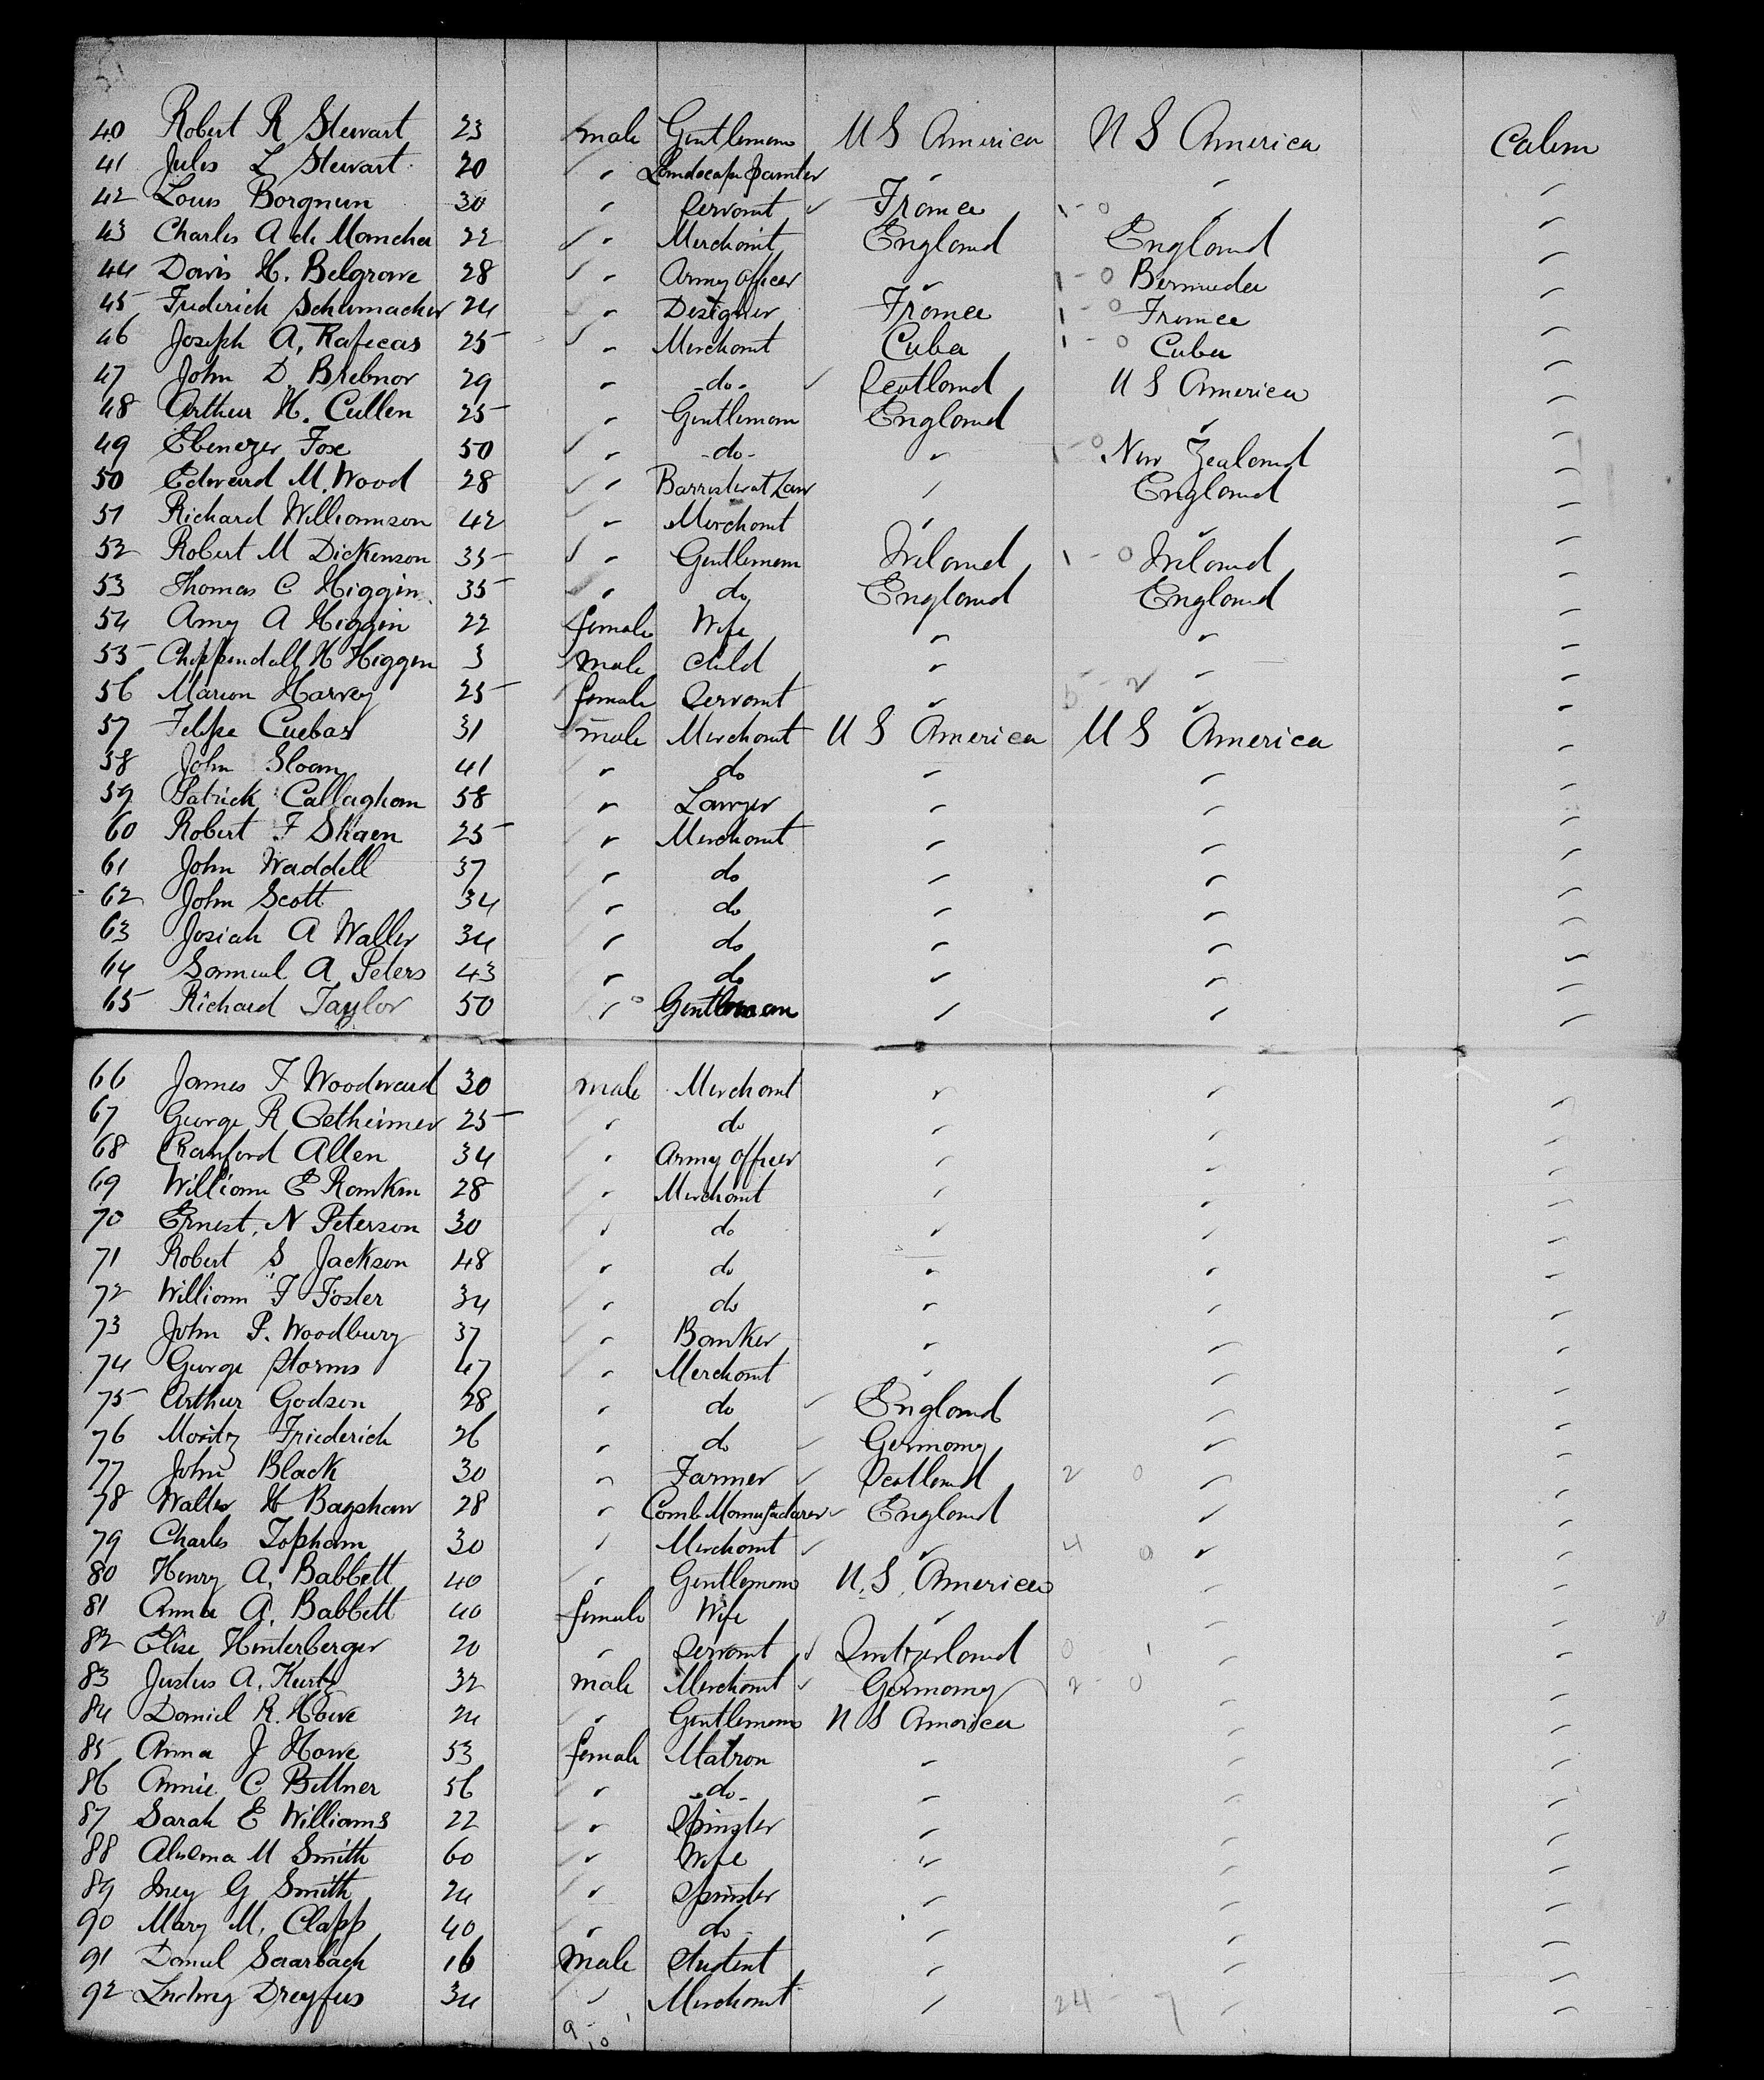 40 Robert R Stewart 23 male Gentleman U S America U S America Cabin
41 Jules L Stewart 20 " Landscape Painter " " "
42 Louis Borgnun 30 " Servant France " "
43 Charles A de Mancha 22 " Merchant England England "
44 Davis H. Belgrave 28 " Army Officer " Bermuda "
45 Frederick Schumacher 24 " Designer France France "
46 Joseph A. Rafecas 25 " Merchant Cuba Cuba "
47 John D. Brebnor 29 " -do- Scotland U S America "
48 Arthur H. Cullen 25 " Gentleman England " "
49 Ebenezer Fox 50 " -do- " New Zealand "
50 Edward M. Wood 28 " Barrister at Law " England "
51 Richard Williamson 42 " Merchant " " "
52 Robert M Dickenson 35 " Gentleman Ireland Ireland "
53 Thomas C Higgin 35 " do England England "
54 Amy A Higgin 22 female Wife " " "
55 Chippendall H Higgin 3 male child " " "
56 Marion Harvey 25 female Servant " " "
57 Felipe Cuebas 31 male Merchant U S America U S America "
58 John Sloan 41 " do " " "
59 Patrick Callaghan 58 " Lawyer " " "
60 Robert F Skaen 25 " Merchant " " "
61 John Waddell 37 " do " " "
62 John Scott 34 " do " " "
63 Josiah A Waller 34 " do " " "
64 Samuel A Peters 43 " do " " "
65 Richard Taylor 50 " Gentleman " " "
66 James F Woodward 30 male Merchant " " "
67 George R Oetheimer 25 " do " " "
68 Cranford Allen 34 " Army Officer " " "
69 William E Rankin 28 " Merchant " " "
70 Ernest. N Peterson 30 " do " " "
71 Robert S Jackson 48 " do " " "
72 William F Foster 34 " do " " "
73 John P. Woodbury 37 " Banker " " "
74 George Storms 47 " Merchant " " "
75 Arthur Godson 28 " do England " "
76 Moritz Friederich 26 " do Germany " "
77 John Black 30 " Farmer Scotland " "
78 Walter H Bagshaw 28 " Comb Manufacturer England " "
79 Charles Topham 30 " Merchant " " "
80 Henry A. Babbett 40 " Gentleman U.S. America " "
81 Anna A. Babbett 40 female Wife " " "
82 Elise Hinterberger 20 " Servant Switzerland " "
83 Justus A. Kurtz 32 male Merchant Germany " "
84 Daniel R. Howe 24 " Gentleman U S America " "
85 Anna J Howe 53 female Matron " " "
86 Annie C Bittner 56 " -do- " " "
87 Sarah E Williams 22 " Spinster " " "
88 M Smith 60 " Wife " " "
89 Iney G Smith 24 " Spinster " " "
90 Mary M. Clapp 40 " do " " "
91 Daniel Saarbach 16 male Student " " "
92 Ludwig Dreyfus 34 " Merchant " " "